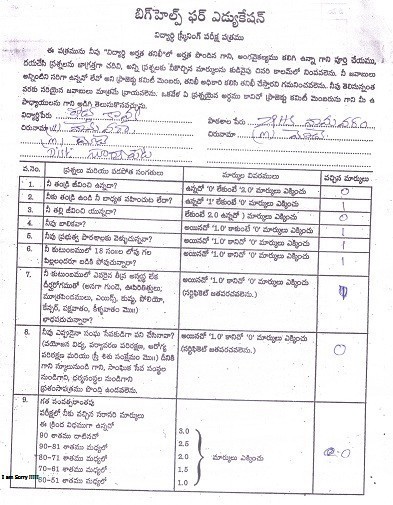 బిగ్‌హెల్ప్ ఫర్ ఎడ్యుకేషన్
విద్యార్థి స్క్రీనింగ్ పరీక్ష పత్రము
ఈ పత్రమును నీవు "విద్యార్థి అర్హత తనిఖీ"లో అర్హత పొందిన గాని, అంగవైకల్యము కలిగి ఉన్నా గాని పూర్తి చేయుము,
దయచేసి ప్రశ్నలను జాగ్రత్తగా చదివి, అన్ని ప్రశ్నలకు సేకరించిన మార్కులను కుడివైపు చివరి కాలమ్‌లో నింపవలెను. నీ జవాబులు
అన్నింటిని సరిగా ఉన్నవో లేవో అని ప్రాజెక్టు కమిటీ మెంబరు, తనిఖీ అధికారి కలిసి తనిఖీ చేస్తారని గమనించవలెను. నీవు తెలిసున్నంత
వరకు సరియైన జవాబులు మాత్రమే వ్రాయవలెను. ఒకవేళ ఏ ప్రశ్నయైన అర్థము కానిచో ప్రాజెక్ట్ కమిటీ మెంబరును గాని మీ ఉ
పాధ్యాయులను గాని అడిగి తెలుసుకొనవచ్చును.
విద్యార్థిపేరు
పాఠశాల పేరు ZPHS
చిరునామా
చిరునామా (m)
(m)
వ.నెం. ప్రశ్నలు మరియు వడపోత సంగతులు మార్కుల వివరములు వచ్చిన మార్కులు
1. నీ తండ్రి జీవించి ఉన్నాడా? ఉన్నచో '0' లేకుంటే '2.0' మార్కులు ఎక్కించు 0
2. నీకు తండ్రి ఉండి నీ బాధ్యత వహించుట లేదా? ఉన్నచో '1' లేకుంటే '0' మార్కులు ఎక్కించు 1
3. నీ తల్లి జీవించి యున్నదా? లేకుంటే 2.0 ఉన్నచో ) మార్కులు ఎక్కించు 0
4. నీవు బాలికవా? అయినచో '1.0' కాకుంటే '0' మార్కులు ఎక్కించు 1
5. నీవు ప్రభుత్వ పాఠశాలకు వెళ్ళుచున్నావా? అయినచో '1.0' కానిచో '0' మార్కులు ఎక్కించు 1
6. నీ కుటుంబములో 18 సం॥ల లోపు గల
పిల్లలందరూ బడికి పోవుచున్నారా? అయినచో '1.0' కానిచో '0' మార్కులు ఎక్కించు 1
7. నీ కుటుంబములో ఎవరైన దీన అవస్థ లేక
దీర్ఘరోగముతో (అనగా గుండె, ఊపిరితిత్తులు,
మూత్రపిండములు, ఎయిడ్స్, కుష్ఠు, పోలియో,
కేన్సర్, పక్షవాతం, కీళ్ళవాతం మొ॥)
బాధపడుచున్నారా? అయినచో '1.0' కానిచో '0' మార్కులు ఎక్కించు
(సర్టిఫికెట్ జతపరచవలెను.)
8. నీవు ఎప్పుడైనా సంఘ సేవకుడిగా పని చేసినావా?
(వయోజన విద్య, పర్యావరణ పరిరక్షణ, ఆరోగ్య
పరిరక్షణ మరియు స్త్రీ శిశు సంక్షేమం మొ॥) దీనికి
గాని స్కూలునుండి గాని, సాంఘిక సేవ సంస్థల
నుండిగాని, ధర్మసంస్థల నుండిగాని
ప్రశంసాపత్రము పొంది ఉండవలెను. అయినచో '1.0' కానిచో '0' మార్కులు ఎక్కించు
(సర్టిఫికెట్ జతపరచవలెను.) 0
9. గత సంవత్సరాంతపు
పరీక్షలో నీకు వచ్చిన సరాసరి మార్కులు
ఈ క్రింద విధముగా ఉన్నచో
90 శాతము దాటినచో 3.0
90-81 శాతము మధ్యలో 2.5
80-71 శాతము మధ్యలో 2.0 మార్కులు ఎక్కించు
70-61 శాతము మధ్యలో 1.5
60-51 శాతము మధ్యలో 1.0
I am Sorry !!!!!